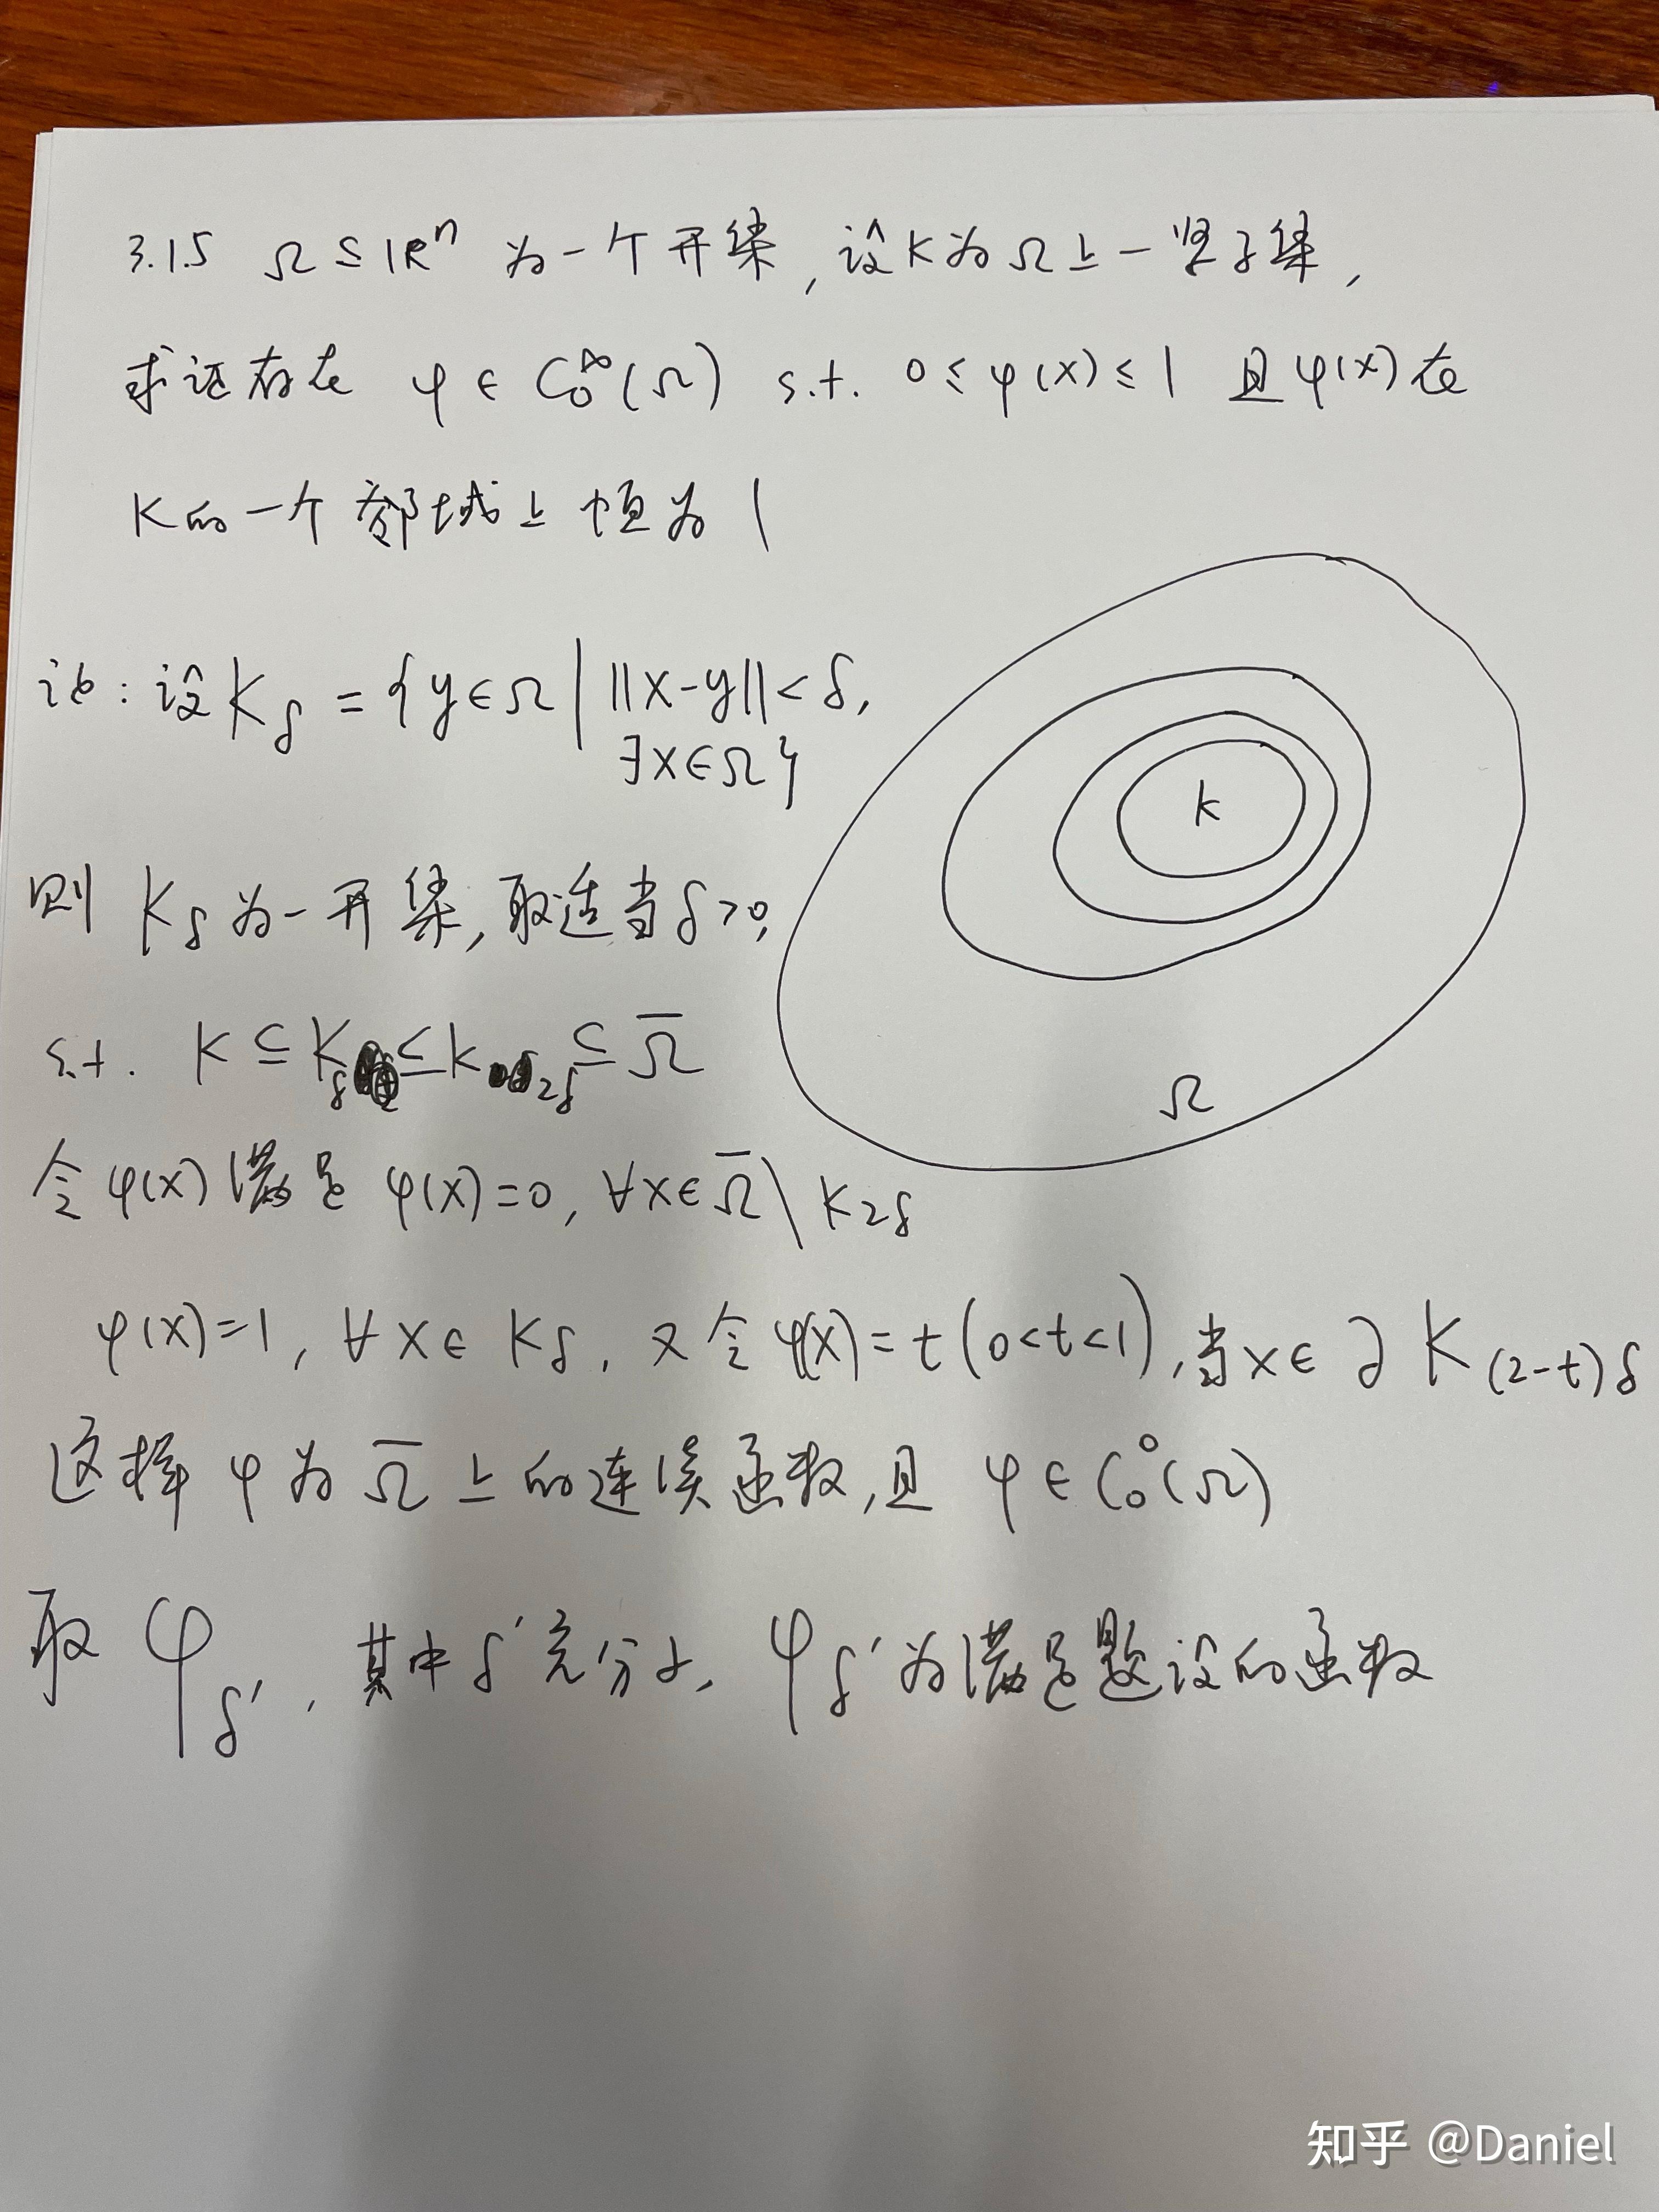 3.1.5 Ω ⊆ ℝⁿ 为一个开集,设K为Ω上一紧子集,
求证存在 φ ∈ C₀^∞(Ω) s.t. 0 ≤ φ(x) ≤ 1 且φ(x)在
K的一个邻域上恒为1
证:设K_δ = {y∈Ω | ||x-y|| < δ,
∃x∈Ω}
则 K_δ为一开集,取适当δ>0,
s.t. K ⊆ K_δ ⊆ K_2δ ⊆ Ω̅
令φ(x)满足 φ(x)=0, ∀x∈Ω̅ \ K_2δ
φ(x)=1, ∀x∈ K_δ. 又令φ(x)=t(0<t<1),当x∈ ∂K_(2-t)δ
这样 φ为Ω̅上的连续函数,且 φ∈C₀⁰(Ω)
取 φ_δ′, 其中δ′充分小, φ_δ′为满足题设的函数
K
Ω
知乎 @Daniel